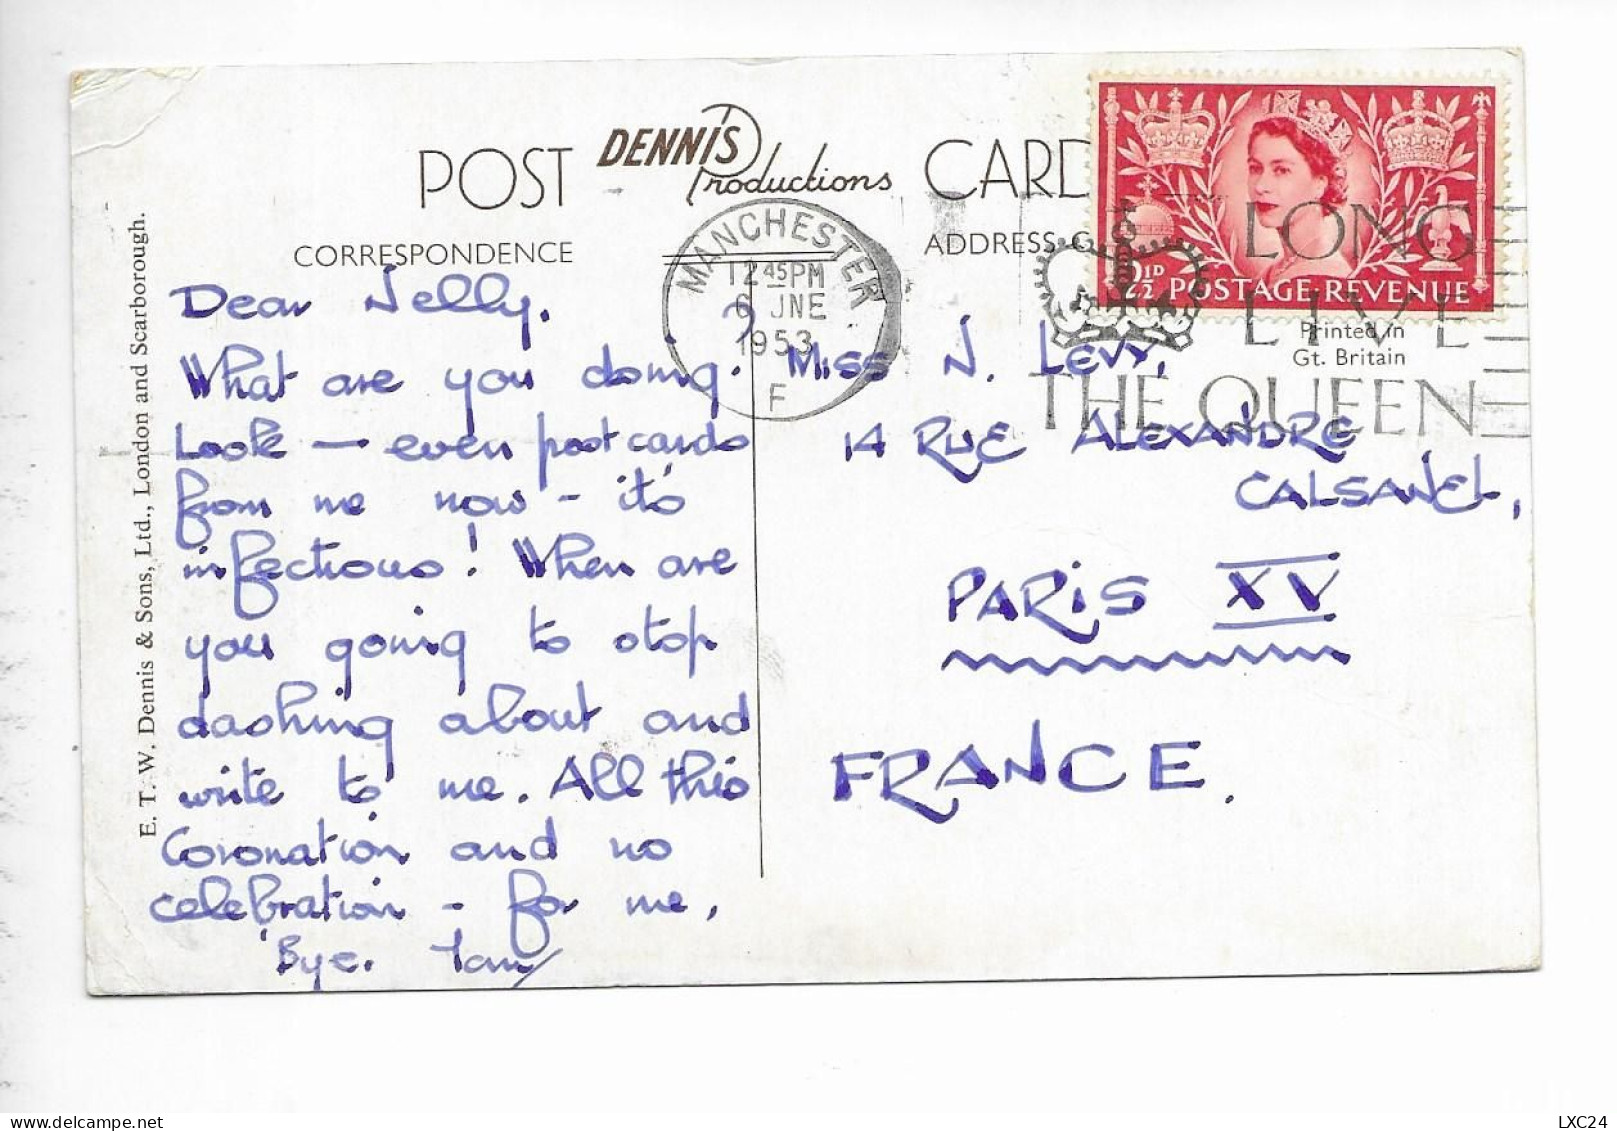 POST DENNIS Productions CARD
CORRESPONDENCE
ADDRESS
MANCHESTER
12 45 PM
6 JNE
1953
F
LONG
LIVE
THE QUEEN
2½D POSTAGE·REVENUE
Printed in
Gt. Britain
E. T. W. Dennis & Sons, Ltd., London and Scarborough.
Dear Nelly.
What are you doing?
Look — even postcards
from me now - it's
infectious! When are
you going to stop
dashing about and
write to me. All this
Coronation and no
celebration - for me.
'Bye.
MISS N. LEVY,
14 RUE ALEXANDRE
CALSANEL,
PARIS XV
FRANCE.
LXC24